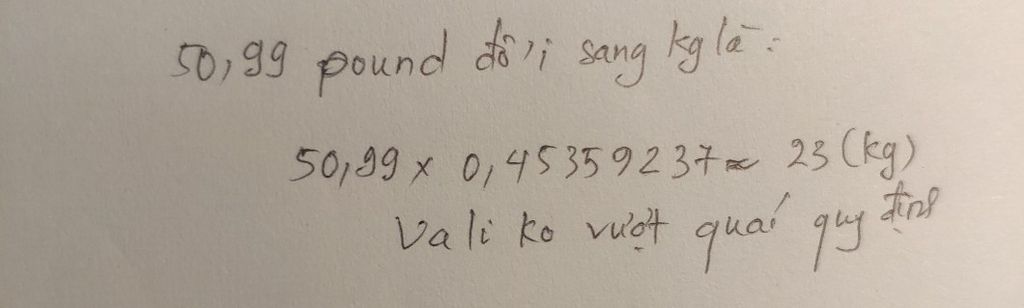 50,99 pound đổi sang kg là :
50,99 x 0,45359237 ≈ 23 (kg)
Va li ko vượt quá quy định